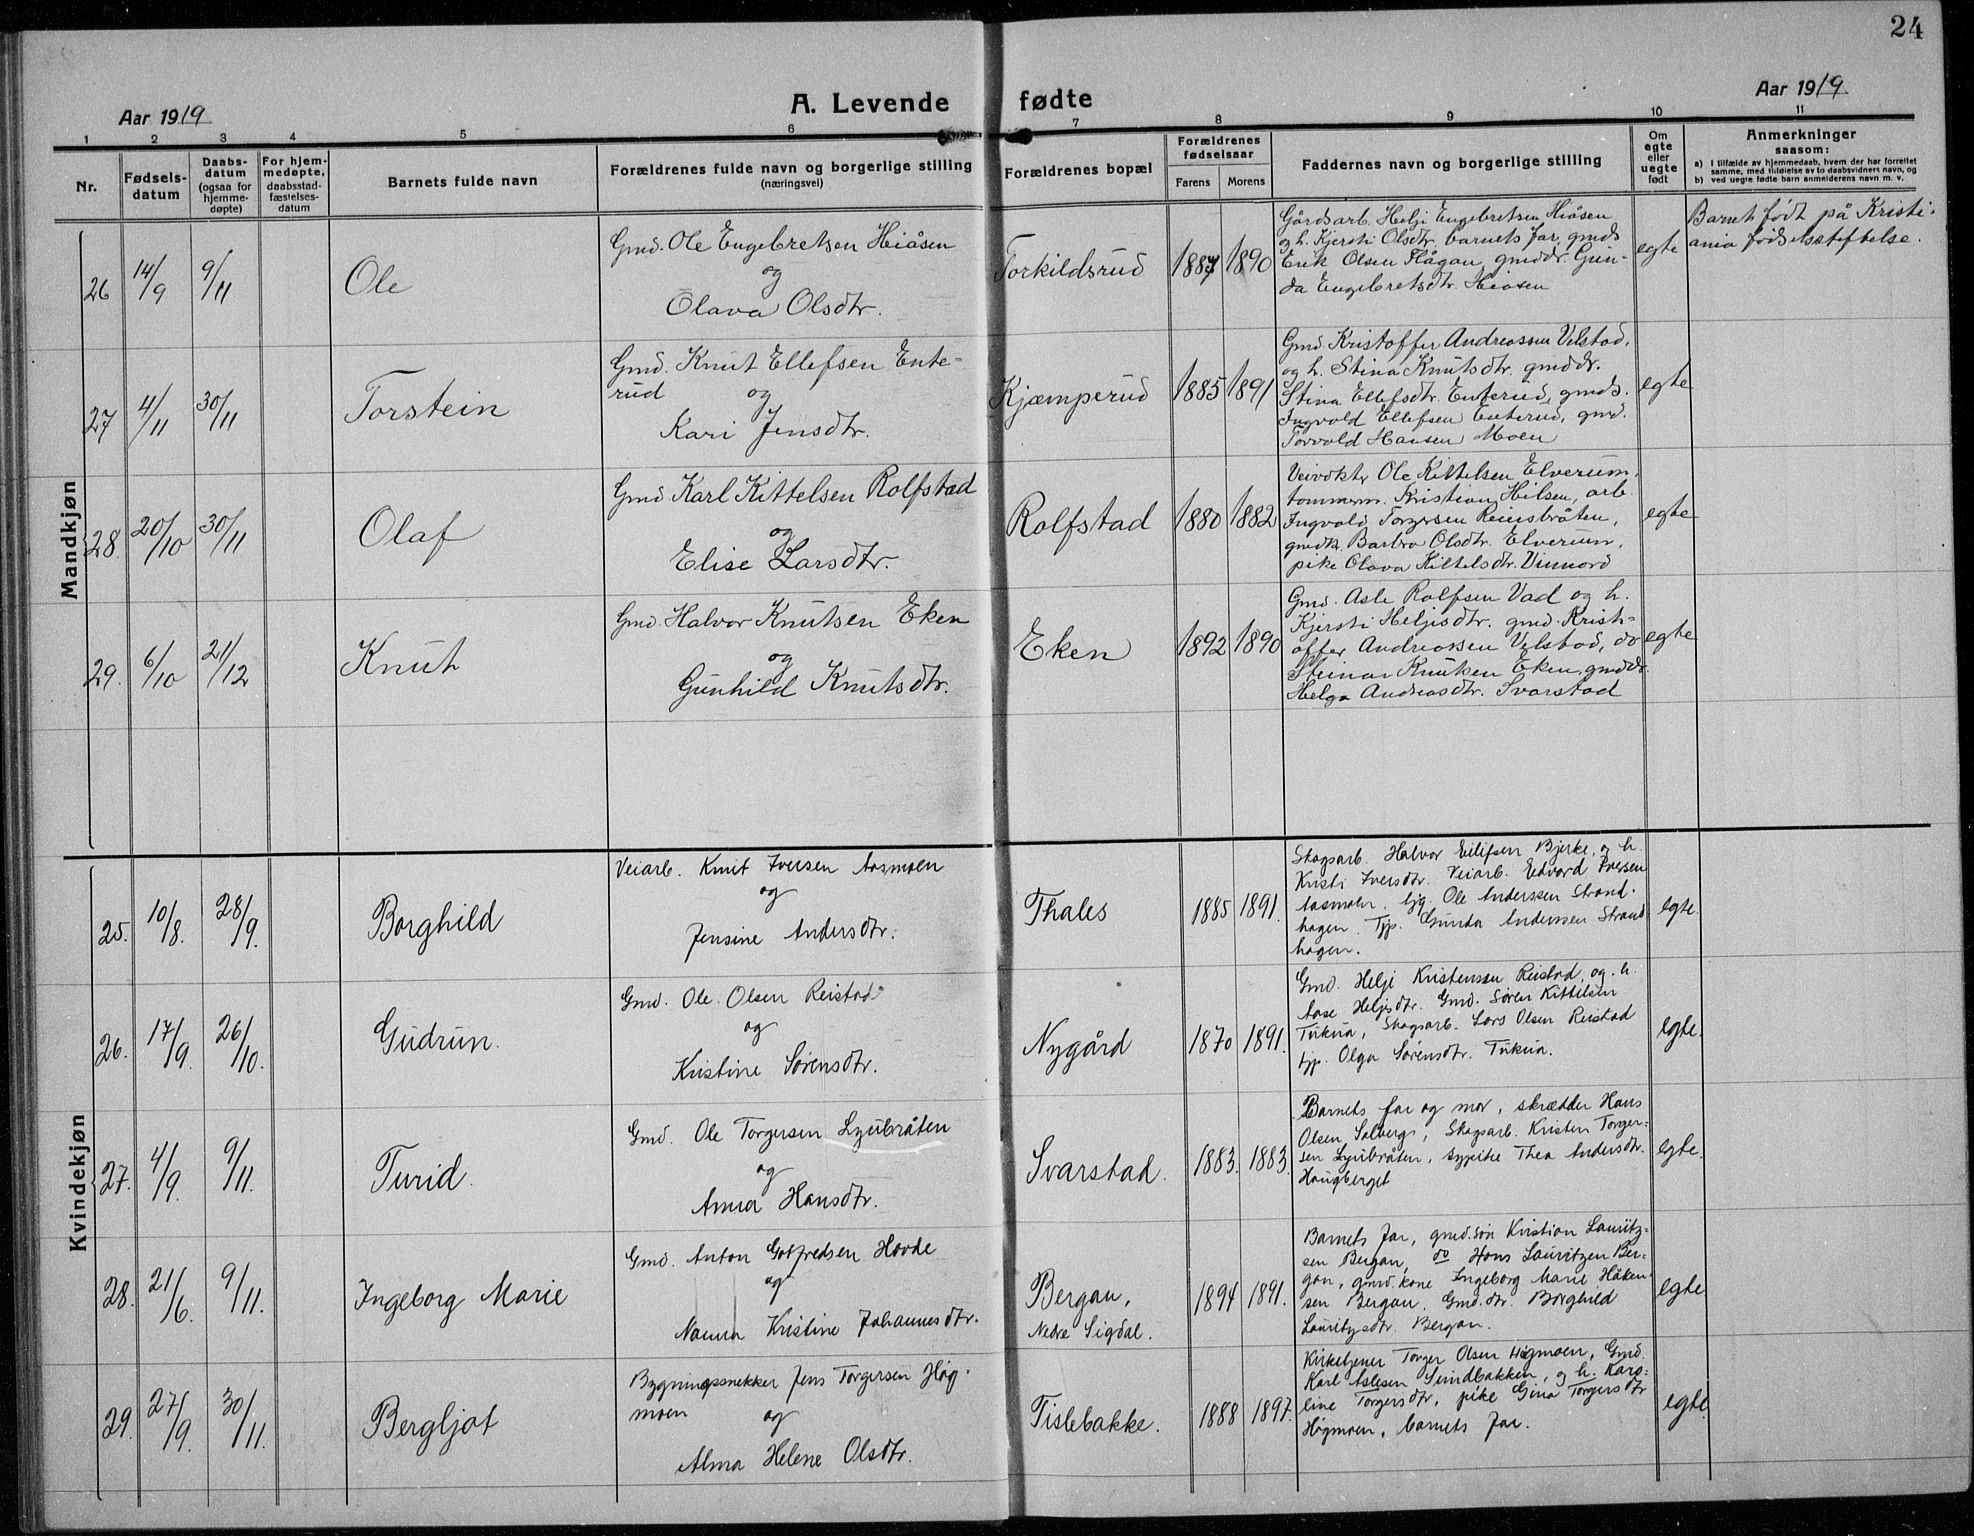 24
Aar 1919
A. Levende fødte
Aar 1919
1 2 3 4 5 6 7 8 9 10 11
Nr.
Fødsels-
datum
Daabs-
datum
(ogsaa for
hjemme-
døpte)
For hjem-
medøpte,
daabsstad-
fæstelses-
datum
Barnets fulde navn
Forældrenes fulde navn og borgerlige stilling
(næringsvei)
Forældrenes bopæl
Forældrenes
fødselsaar
Farens Morens
Faddernes navn og borgerlige stilling
Om
egte
eller
uegte
født
Anmerkninger
saasom:
a) I tilfælde av hjemmedaab, hvem der har forrettet
samme, med tilføielse av to daabsvidners navn, og
b) ved uegte fødte barn anmelderens navn m. v.
Mandkjøn
26 14/9 9/11 Ole
Gmd. Ole Engebretsen Hiåsen
og
Olava Olsdtr.
Torkildsrud 1887 1890
Gårdsarb. Helje Engebretsen Hiåsen
og h. Kjersti Olsdtr. barnets far, gmds
Erik Olsen Flågan, gmddr. Gun-
da Engebretsdtr. Hiåsen
egte
Barnet født på Kristi-
ania fødselsstiftelse.
27 4/11 30/11 Torstein
Gmd. Knut Ellefsen Ente-
rud og
Kari Jensdtr.
Kjæmperud 1885 1891
Gmd Kristoffer Andreassen Velstad,
og h. Stina Knutsdtr. gmddr.
Stina Ellefsdtr. Enterud, gmds.
Ingvald Ellefsen Enterud, gmd.
Torvald Hansen Moen
egte
28. 20/10 30/11 Olaf
Gmd Karl Kittelsen Rolfstad
og
Elise Larsdtr.
Rolfstad 1880 1882
Veivokter Ole Kittelsen Elverum,
tømmerm. Kristian Hilsen, arb.
Ingvald Torgersen Reinsbråten,
gmdk. Barbro Olsdtr. Elverum,
pike Olava Kittelsdtr. Vinnord
egte
29. 6/10 21/12 Knut
Gmd. Halvor Knutsen Eken
og
Gunhild Knutsdtr.
Eken 1892 1890
Gmd. Asle Rolfsen Vad og h.
Kjersti Heljesdtr. gmd. Krist-
offer Andreassen Velstad, do
Steinar Knutsen Eken, gmddr.
Helga Andreasdtr. Svarstad
egte
Kvindekjøn
25. 10/8. 28/9. Borghild
Veiarb. Knut Iversen Aasmoen
og
Jensine Andersdtr.
Thales 1885 1891.
Skogsarb. Halvor Eilifsen Bjerke, og h.
Kristi Iversdtr. Veiarb. Edvard Iversen
Aasmoen, Ole Anderssen Strand-
hagen. Tjp. Gunda Anderssen Strand
hagen.
egte.
26. 17/9. 26/10. Gudrun.
Gmd. Ole Olsen Reistad
og
Kristine Sørensdtr.
Nygård 1870 1891.
Gmd. Helje Kristenssen Reistad, og h.
Aase Heljesdtr. Gmd. Søren Kittilsen
Tukua, Skogsarb. Lars Olsen Reistad
tjp. Olga Sørensdtr. Tukua.
egte.
27. 4/9. 9/11. Turid.
Gmd. Ole Torgersen Lyubråten
og
Anna Hansdtr.
Svarstad. 1883. 1883.
Barnets far og mor, skrædder Hans
Olsen Solberg, Skogsarb. Kristen Torger-
sen Lyubråten, sypike Thea Andersdtr.
Haugberget
egte.
28. 21/6. 9/11. Ingeborg Marie
Gmd. Anton Gotfredsen Hovde
og
Nanna Kristine Johannesdtr.
Bergan,
Nedre Sigdal.
1894 1891.
Barnets far, gmd.søn Kristian Lauritz-
sen Bergan, do Hans Lauritzen Ber-
gan, gmd.kone Ingeborg Marie Håken-
sen Bergan, Gmd.dtr. Borghild
Lauritzsdtr. Bergan.
egte
29. 27/9. 30/11. Bergljot
Bygningssnekker Jens Torgersen Høg-
moen og
Alma Helene Olsdtr.
Tislebakke. 1888 1897.
Kirketjener Torger Olsen Høgmoen, Gmd.
Karl Aslesen Sundbakken, og h. Karo-
line Torgersdtr, pike Gina Torgersdtr
Høgmoen, barnets far.
egte